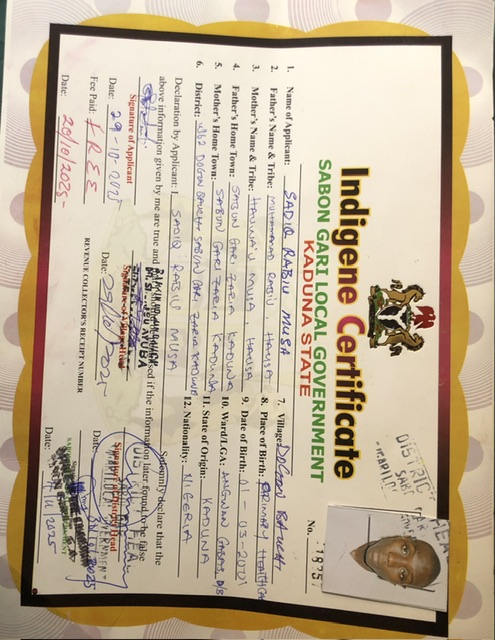 Indigene Certificate
SABON GARI LOCAL GOVERNMENT
KADUNA STATE
No. 18357
1. Name of Applicant: SADIQ RABIU MUSA
2. Father's Name & Tribe: MUHAMMAD RABIU, HAUSA
3. Mother's Name & Tribe: HAUWA'U MUSA, HAUSA
4. Father's Home Town: SABON GARI ZARIA KADUNA
5. Mother's Home Town: SABON GARI ZARIA KADUNA
6. District: DOGON BAUCHI SABON GARI ZARIA KADUNA
7. Village: DOGON BAUCHI
8. Place of Birth: PRIMARY HEALTH
9. Date of Birth: 01-03-2001
10. Ward/LGA: ANGWAN GABAS, D/B
11. State of Origin: KADUNA
12. Nationality: NIGERIA
Declaration by Applicant: I SADIQ RABIU MUSA Solemnly declare that the
above information given by me are true and if the information later found to be false
Signature of Applicant
Date: 29-10-2025
Fee Paid: FREE
Date: 29/10/2025
AYUBA
Date:
REVENUE COLLECTOR'S RECEIPT NUMBER
Signature of District Head
Date:
Date:
DISTRICT HEAD